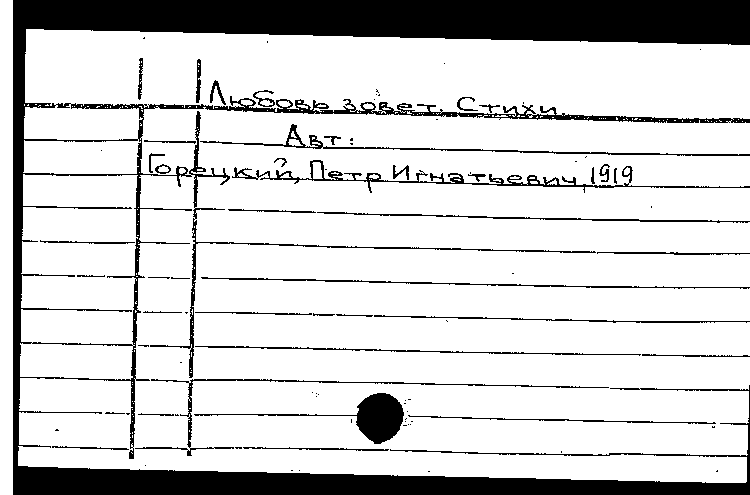 Любовь зовет. Стихи.
Авт:
Горецкий, Петр Игнатьевич, 1919